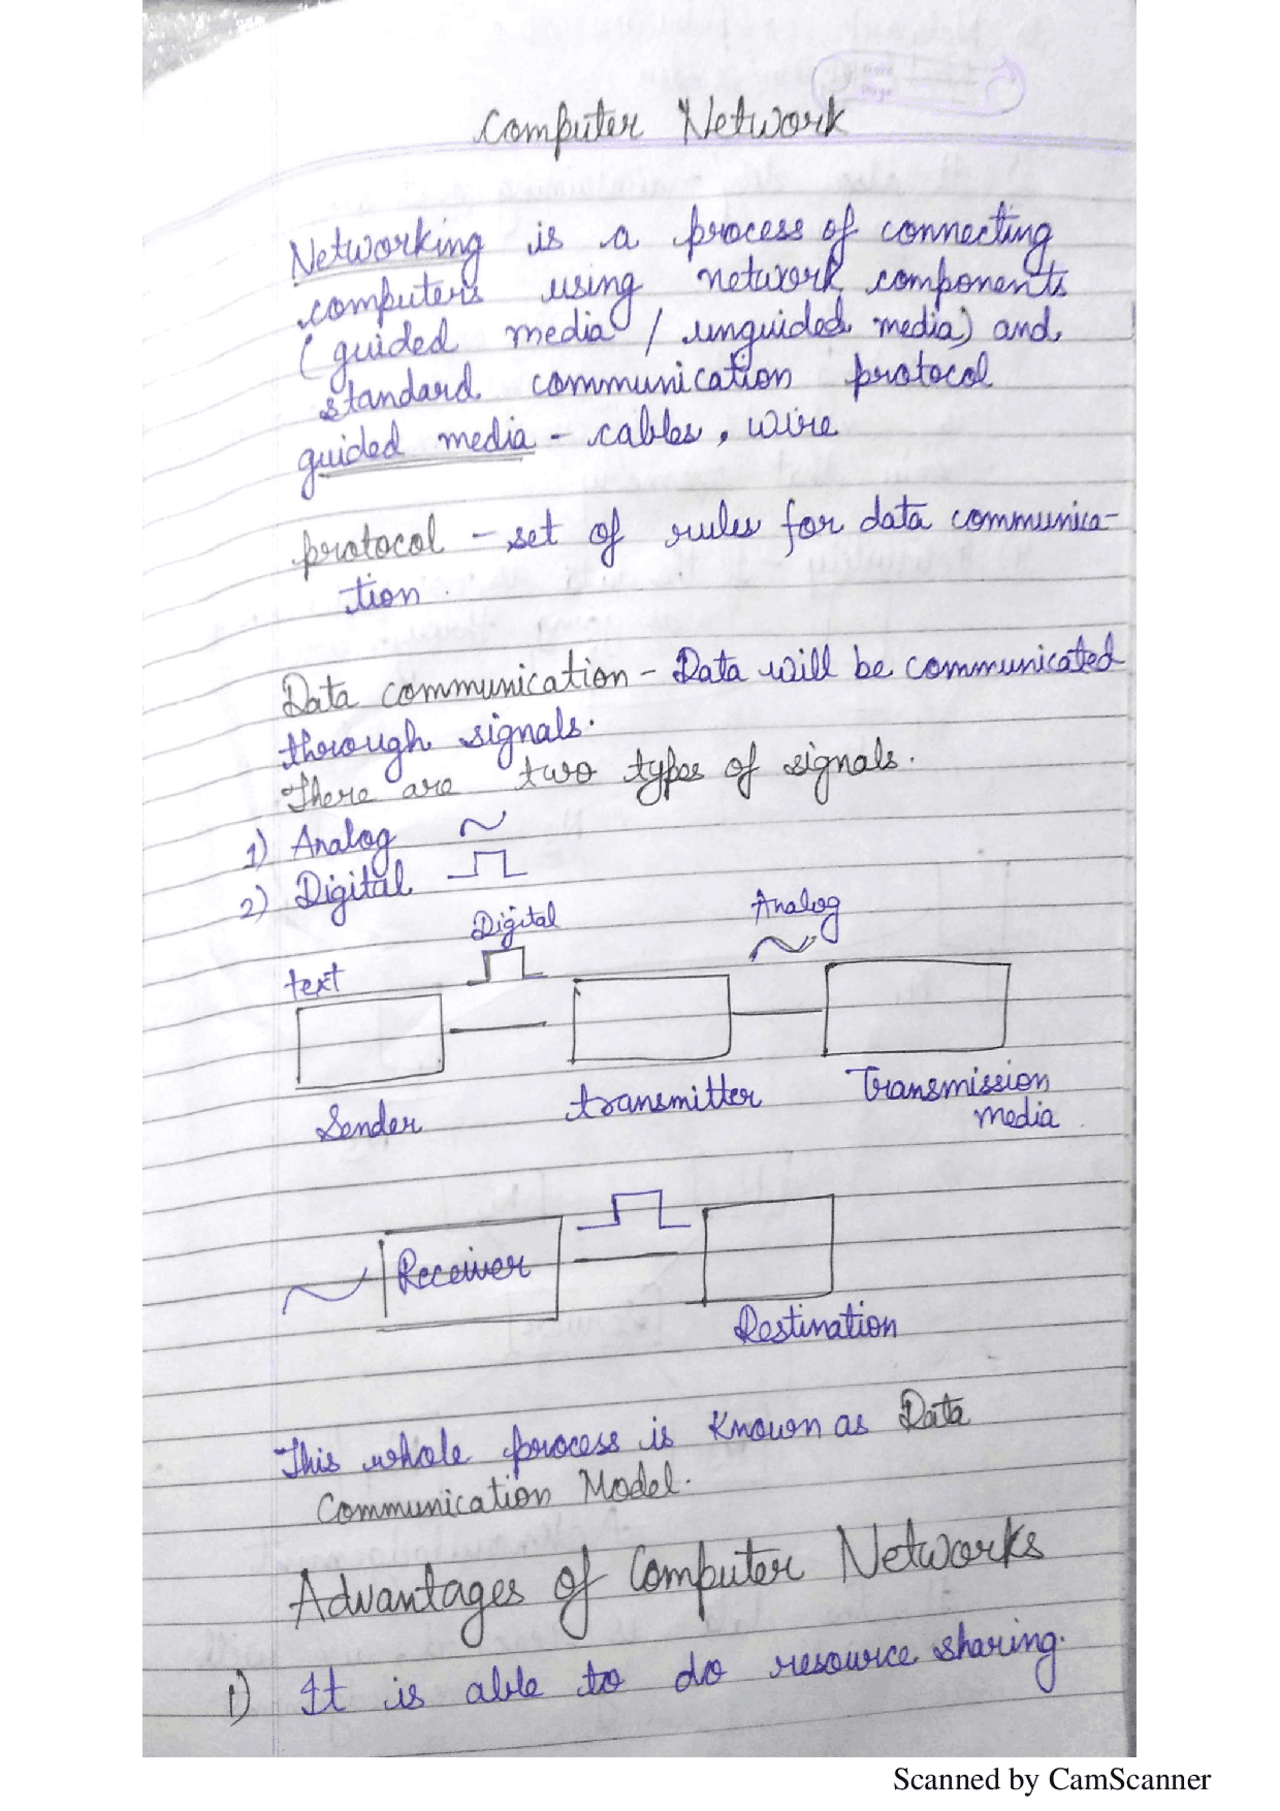 Computer Network
Networking is a process of connecting
computers using network components
(guided media / unguided media) and
standard communication protocol
guided media - cables, wire
protocol - set of rules for data communica-
tion.
Data communication - Data will be communicated
through signals.
There are two types of signals.
1) Analog
2) Digital
Digital Analog
text
Sender transmitter Transmission
media
Receiver
Destination
This whole process is known as Data
Communication Model.
Advantages of Computer Networks
1) It is able to do resource sharing.
Scanned by CamScanner